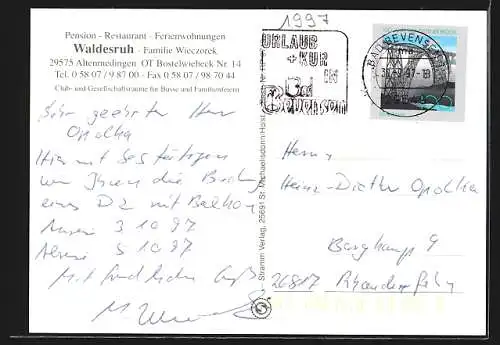 1997
Pension - Restaurant - Ferienwohnungen
Waldesruh - Familie Wieczorek
29575 Altenmedingen OT Bostelwiebeck Nr. 14
Tel. 0 58 07 / 9 87 00 - Fax 0 58 07 / 98 70 44
Club- und Gesellschaftsräume für Busse und Familienfeiern
Sehr geehrter Herr
Opolka
Hiermit bestätigen
wir Ihnen die Buchung
eines DZ mit Balkon
3 10 97
5 10 97
Mit freundlichen Grüßen
URLAUB
+ KUR
IN
Bad
Bevensen
BAD BEVENSEN
Stramm Verlag, 25691 St. Michaelisdonn/Holst.
Herrn
Heinz-Dieter Opolka
9
26817 Rhauderfehn